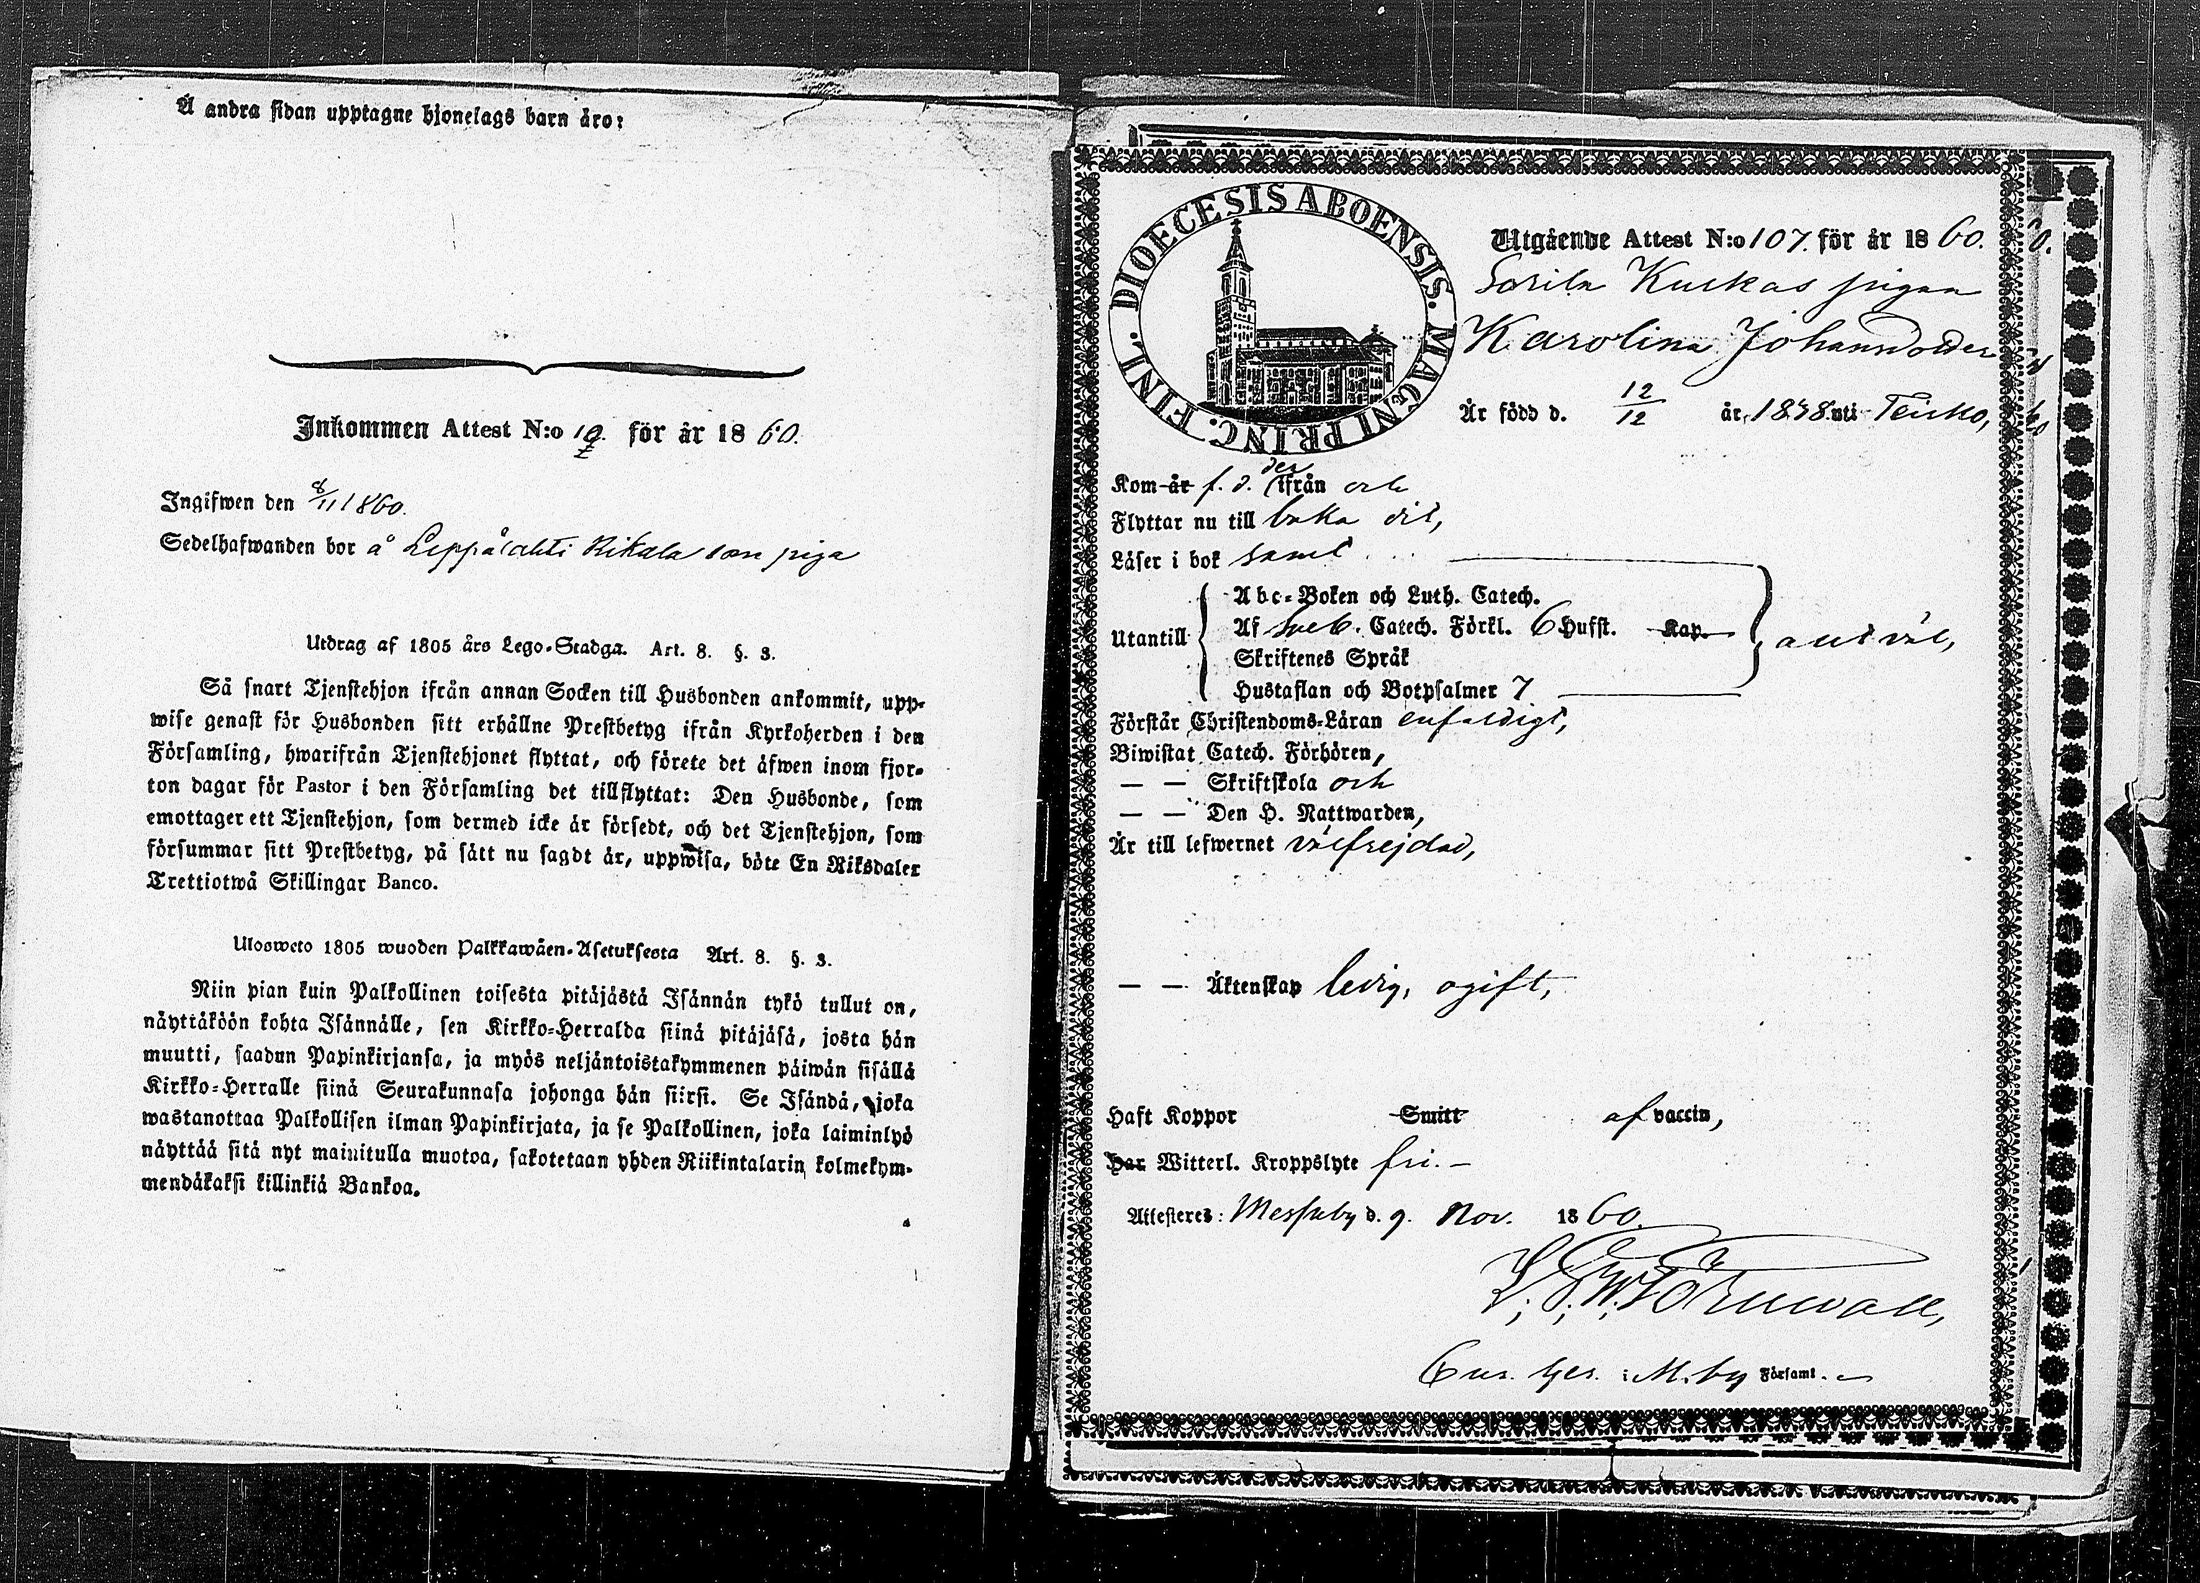 Å andra sidan upptagne hjonelags barn äro:
Inkommen Attest N:o 19. för år 1860.
Ingifwen den 8/11 1860.
Sedelhafwanden bor å Leppälahti Rikala som piga
Utdrag af 1805 års Lego-Stadga. Art. 8. §. 3.
Så snart Tjenstehjon ifrån annan Socken till Husbonden ankommit, upp-
wise genast för Husbonden sitt erhållne Prestbetyg ifrån Kyrkoherden i den
Församling, hwarifrån Tjenstehjonet flyttat, och förete det äfwen inom fjor-
ton dagar för Pastor i den Församling det tillflyttat: Den Husbonde, som
emottager ett Tjenstehjon, som dermed icke är försedt, och det Tjenstehjon, som
försummar sitt Prestbetyg, på sätt nu sagdt är, uppwisa, böte En Riksdaler
Trettiotwå Skillingar Banco.
Ulosweto 1805 wuoden Palkkawäen-Asetuksesta Art. 8. §. 3.
Niin pian kuin Palkollinen toisesta pitäjästä Isännän tykö tullut on,
näyttäköön kohta Isännälle, sen Kirkko-Herralda siinä pitäjäsä, josta hän
muutti, saadun Papinkirjansa, ja myös neljäntoistakymmenen päiwän sisällä
Kirkko-Herralle siinä Seurakunnasa johonga hän siirsi. Se Isändä, joka
wastanottaa Palkollisen ilman Papinkirjata, ja se Palkollinen, joka laiminlyö
näyttää sitä nyt mainitulla muotoa, sakotetaan yhden Riikintalarin kolmekym-
mendäkaksi killinkiä Bankoa.
DIOECESIS ABOENSIS. MAGNI PRINC. FINL.
Utgående Attest N:o 107. för år 1860.
Sorila Kuckas pigan
Karolina Johansdotter
Är född d. 12/12 år 1838 uti Teisko,
Kom år f. d. derifrån och
Flyttar nu till baka dit,
Läser i bok samt
Utantill
Abc-Boken och Luth. Catech.
Af Sveb. Catech. Förkl. 6 Hufst. Kap.
Skriftenes Språk
Hustaflan och Botpsalmer 7
Förstår Christendoms-Läran enfaldigt,
Biwistat Catech. Förhören,
— — Skriftskola och
— — Den H. Nattwarden,
Är till lefwernet välfrejdad,
— — Äktenskap ledig, ogift,
Haft Koppor Smitt af vaccin,
Har Witterl. Kroppslyte fri. —
Attesteres: Messuby d. 9. Nov. 1860.
Törnwall,
i M.by Församl.